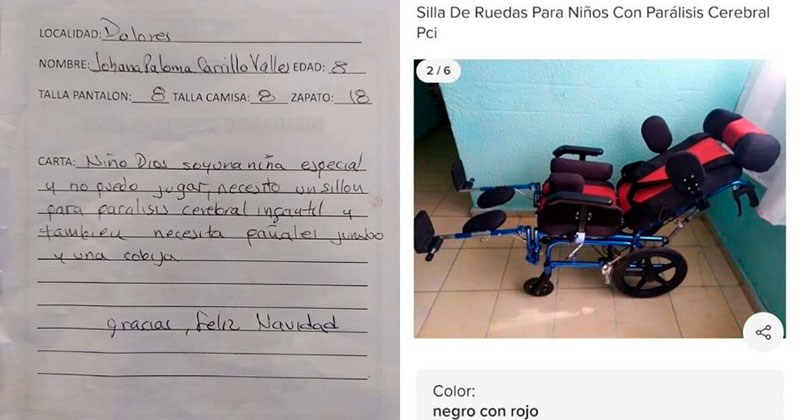 LOCALIDAD: Dolores
NOMBRE: Johana Paloma Carrillo Valles EDAD: 8
TALLA PANTALON: 8 TALLA CAMISA: 8 ZAPATO: 18
CARTA: Niño Dios soy una niña especial
y no puedo jugar, necesito un sillon
para paralisis cerebral infantil y
tambien necesita pañales jumbo
y una cobija
gracias, Feliz Navidad
Silla De Ruedas Para Niños Con Parálisis Cerebral
Pci
2 / 6
Color:
negro con rojo